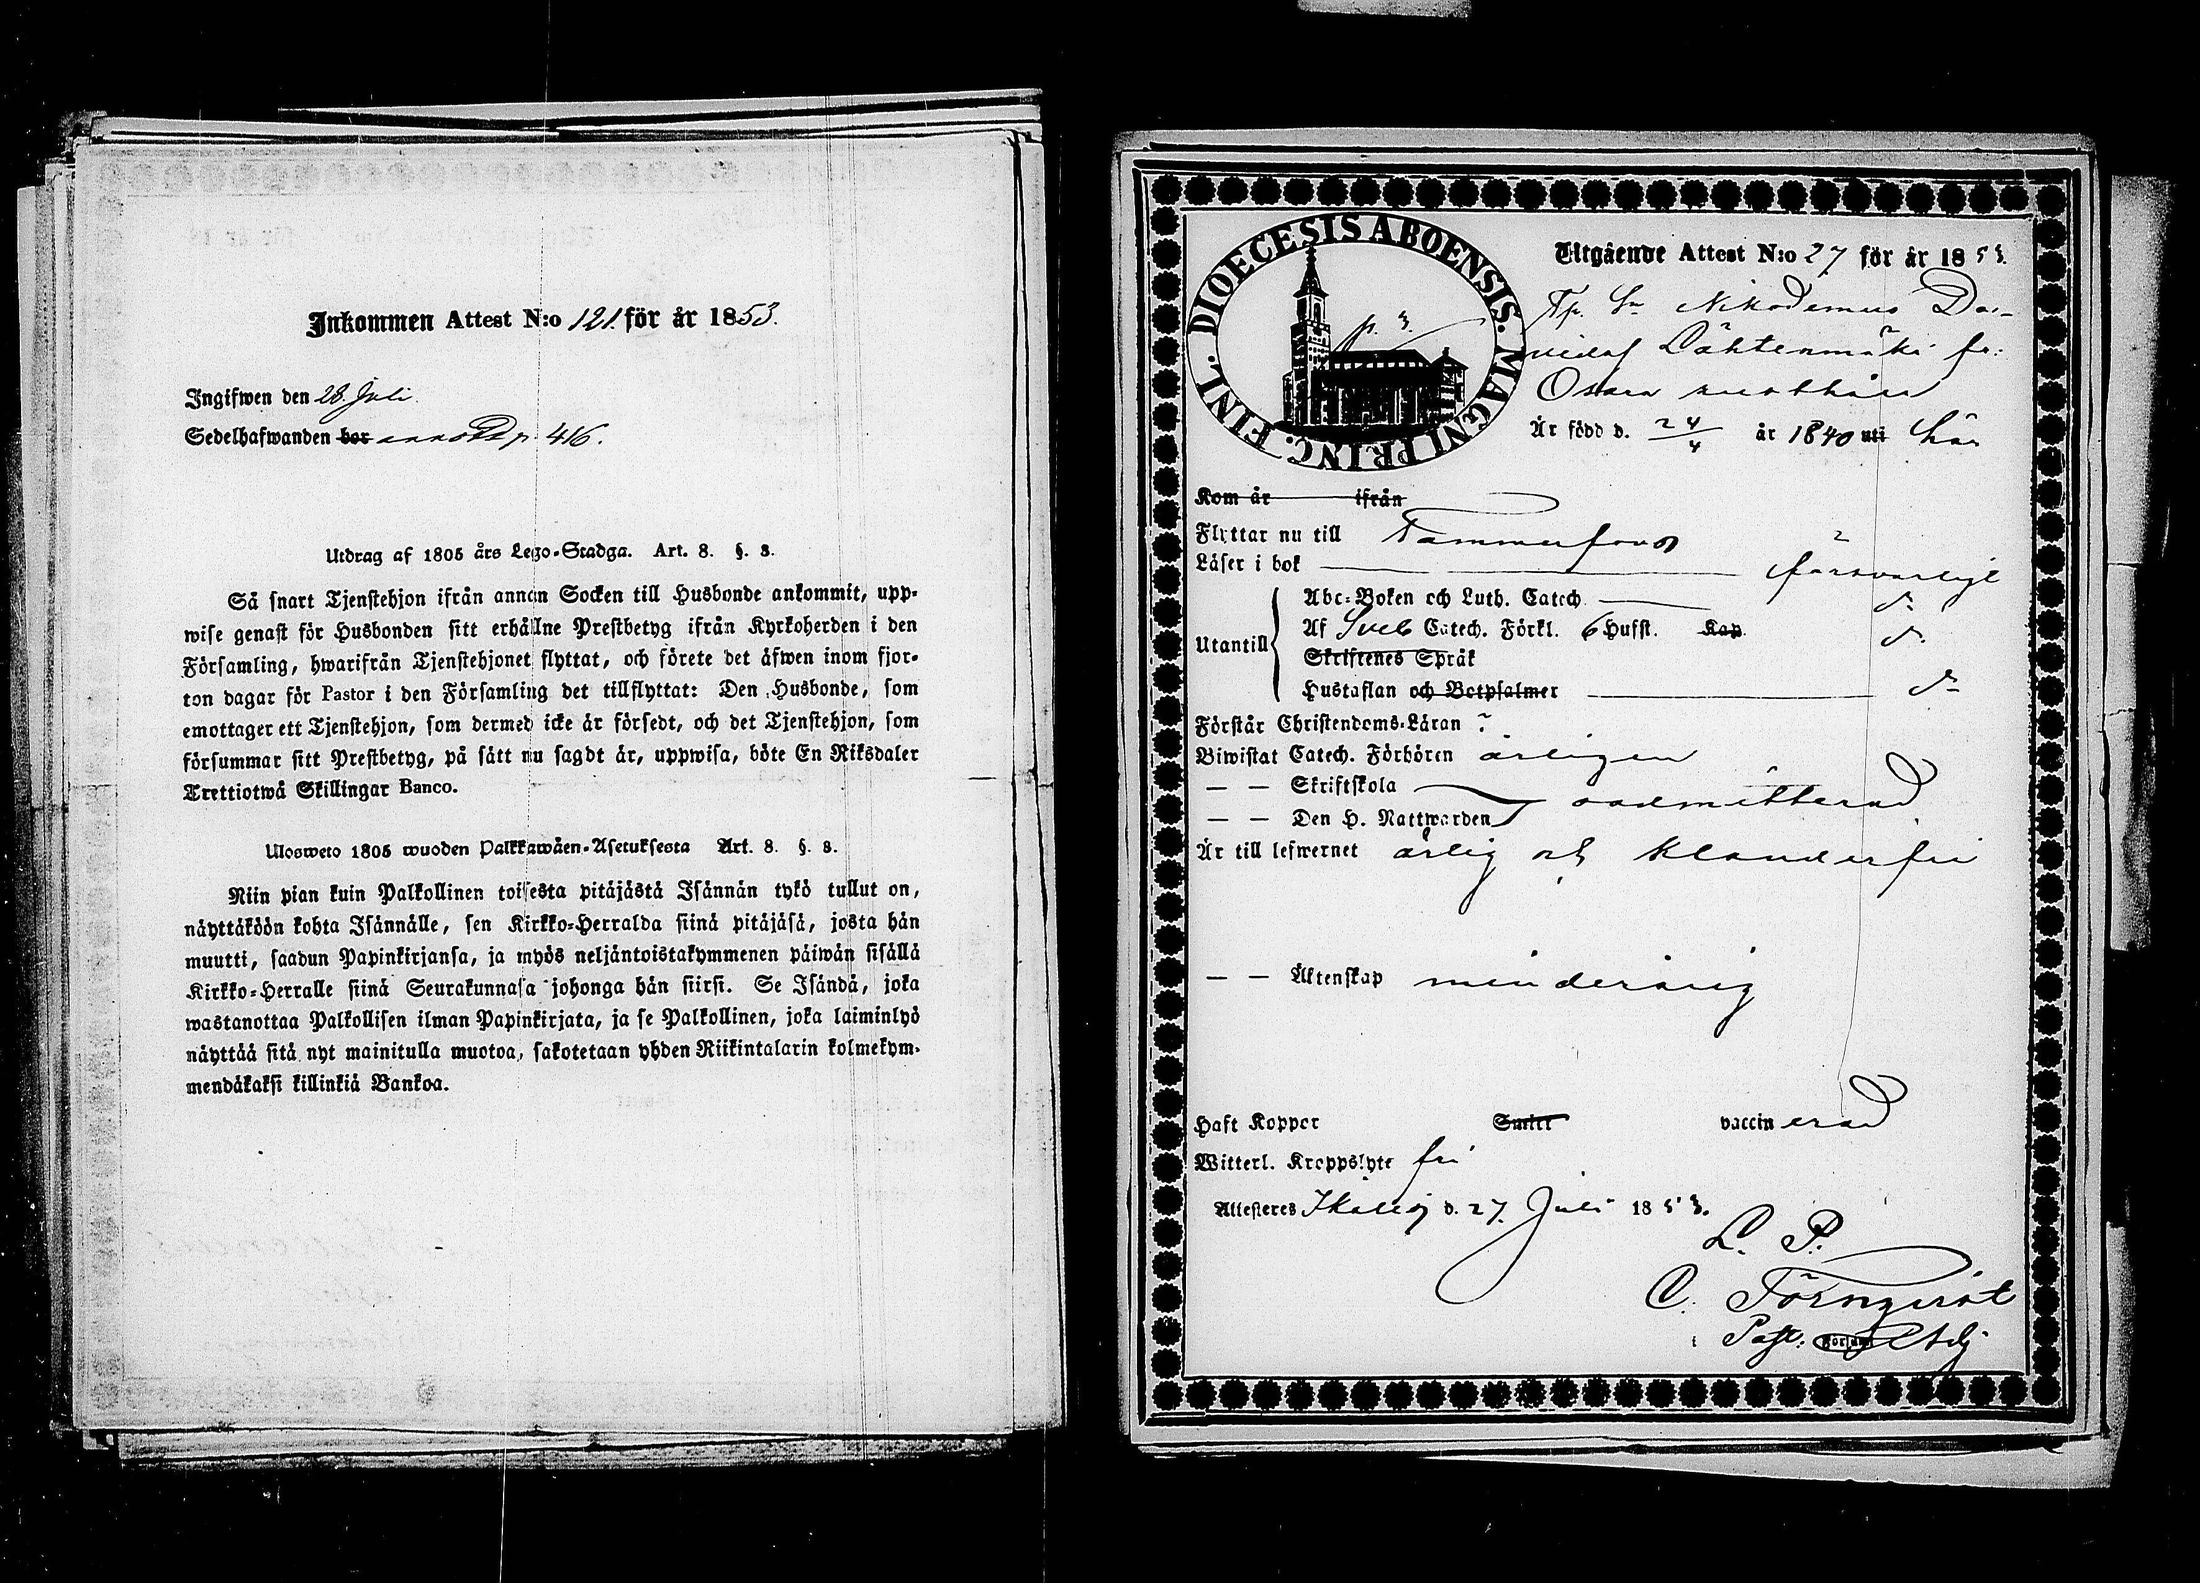 Inkommen Attest N:o 121. för år 1853.
Ingifwen den 28. Juli.
Sedelhafwanden bor annott p. 416.
Utdrag af 1805 års Lego-Stadga. Art. 8. §. 8.
Så snart Tjenstehjon ifrån annan Socken till Husbonde ankommit, upp-
wise genast för Husbonden sitt erhållne Prestbetyg ifrån Kyrkoherden i den
Församling, hwarifrån Tjenstehjonet flyttat, och förete det äfwen inom fjor-
ton dagar för Pastor i den Församling det tillflyttat: Den Husbonde, som
emottager ett Tjenstehjon, som dermed icke är försedt, och det Tjenstehjon, som
försummar sitt Prestbetyg, på sätt nu sagdt är, uppwisa, böte En Riksdaler
Trettiotwå Skillingar Banco.
Ulosweto 1805 wuoden Palkkawäen-Asetuksesta Art. 8. §. 8.
Niin pian kuin Palkollinen toisesta pitäjästä Isännän tykö tullut on,
näyttäköön kohta Isännälle, sen Kirkko-Herralda siinä pitäjäsä, josta hän
muutti, saadun Papinkirjansa, ja myös neljäntoistakymmenen päiwän sisällä
Kirkko-Herralle siinä Seurakunnasa johonga hän siirsi. Se Isändä, joka
wastanottaa Palkollisen ilman Papinkirjata, ja se Palkollinen, joka laiminlyö
näyttää sitä nyt mainitulla muotoa, sakotetaan yhden Riikintalarin kolmekym-
mendäkaksi killinkiä Bankoa.
FINL. DIOECESIS ABOENSIS. MAGNI PRINC.
p. 3.
Utgående Attest N:o 27 för år 1853.
Tp. Sn Nikodemus Da-
vidsf Lähtenmäki fr:
Osara
Är född d. 24/4 år 1840 uti här
Kom år ifrån
Flyttar nu till Tammerfors
Läser i bok försvarligt
Utantill
Abc-Boken och Luth. Catech. do
Af Sveb Catech. Förkl. 6 Hufst. Kap. do
Skriftenes Språk
Hustaflan och Botpsalmer do
Förstår Christendoms-Läran ?
Biwistat Catech. Förhören årligen
— — Skriftskola
oadmitterad
— — Den H. Nattwarden
Är till lefwernet ärlig och klanderfri
— — Äktenskap minderårig
Haft Koppor Smitt vaccinerad
Witterl. Kroppslyte fri
Attesteres Ikalis d. 27. Juli 1853.
L. P.
C. Törnqvist
Past: Adj